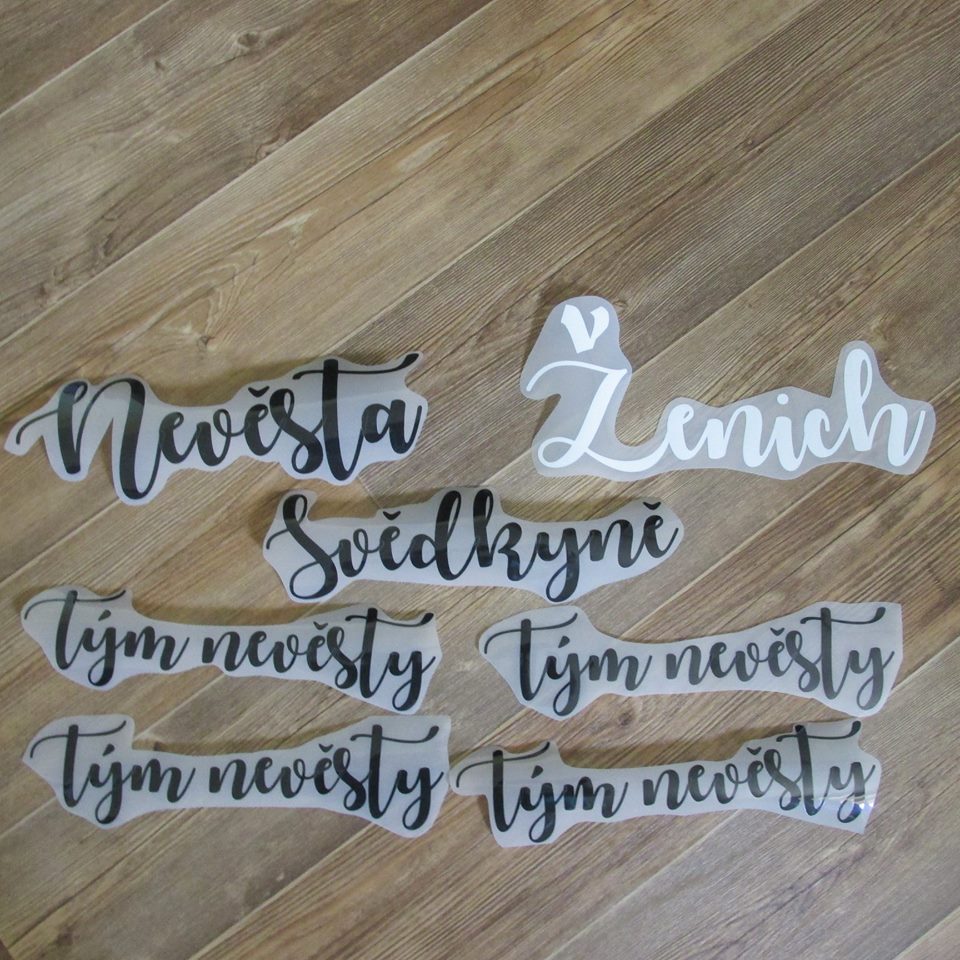 Nevěsta
Ženich
Svědkyně
tým nevěsty
tým nevěsty
tým nevěsty
tým nevěsty